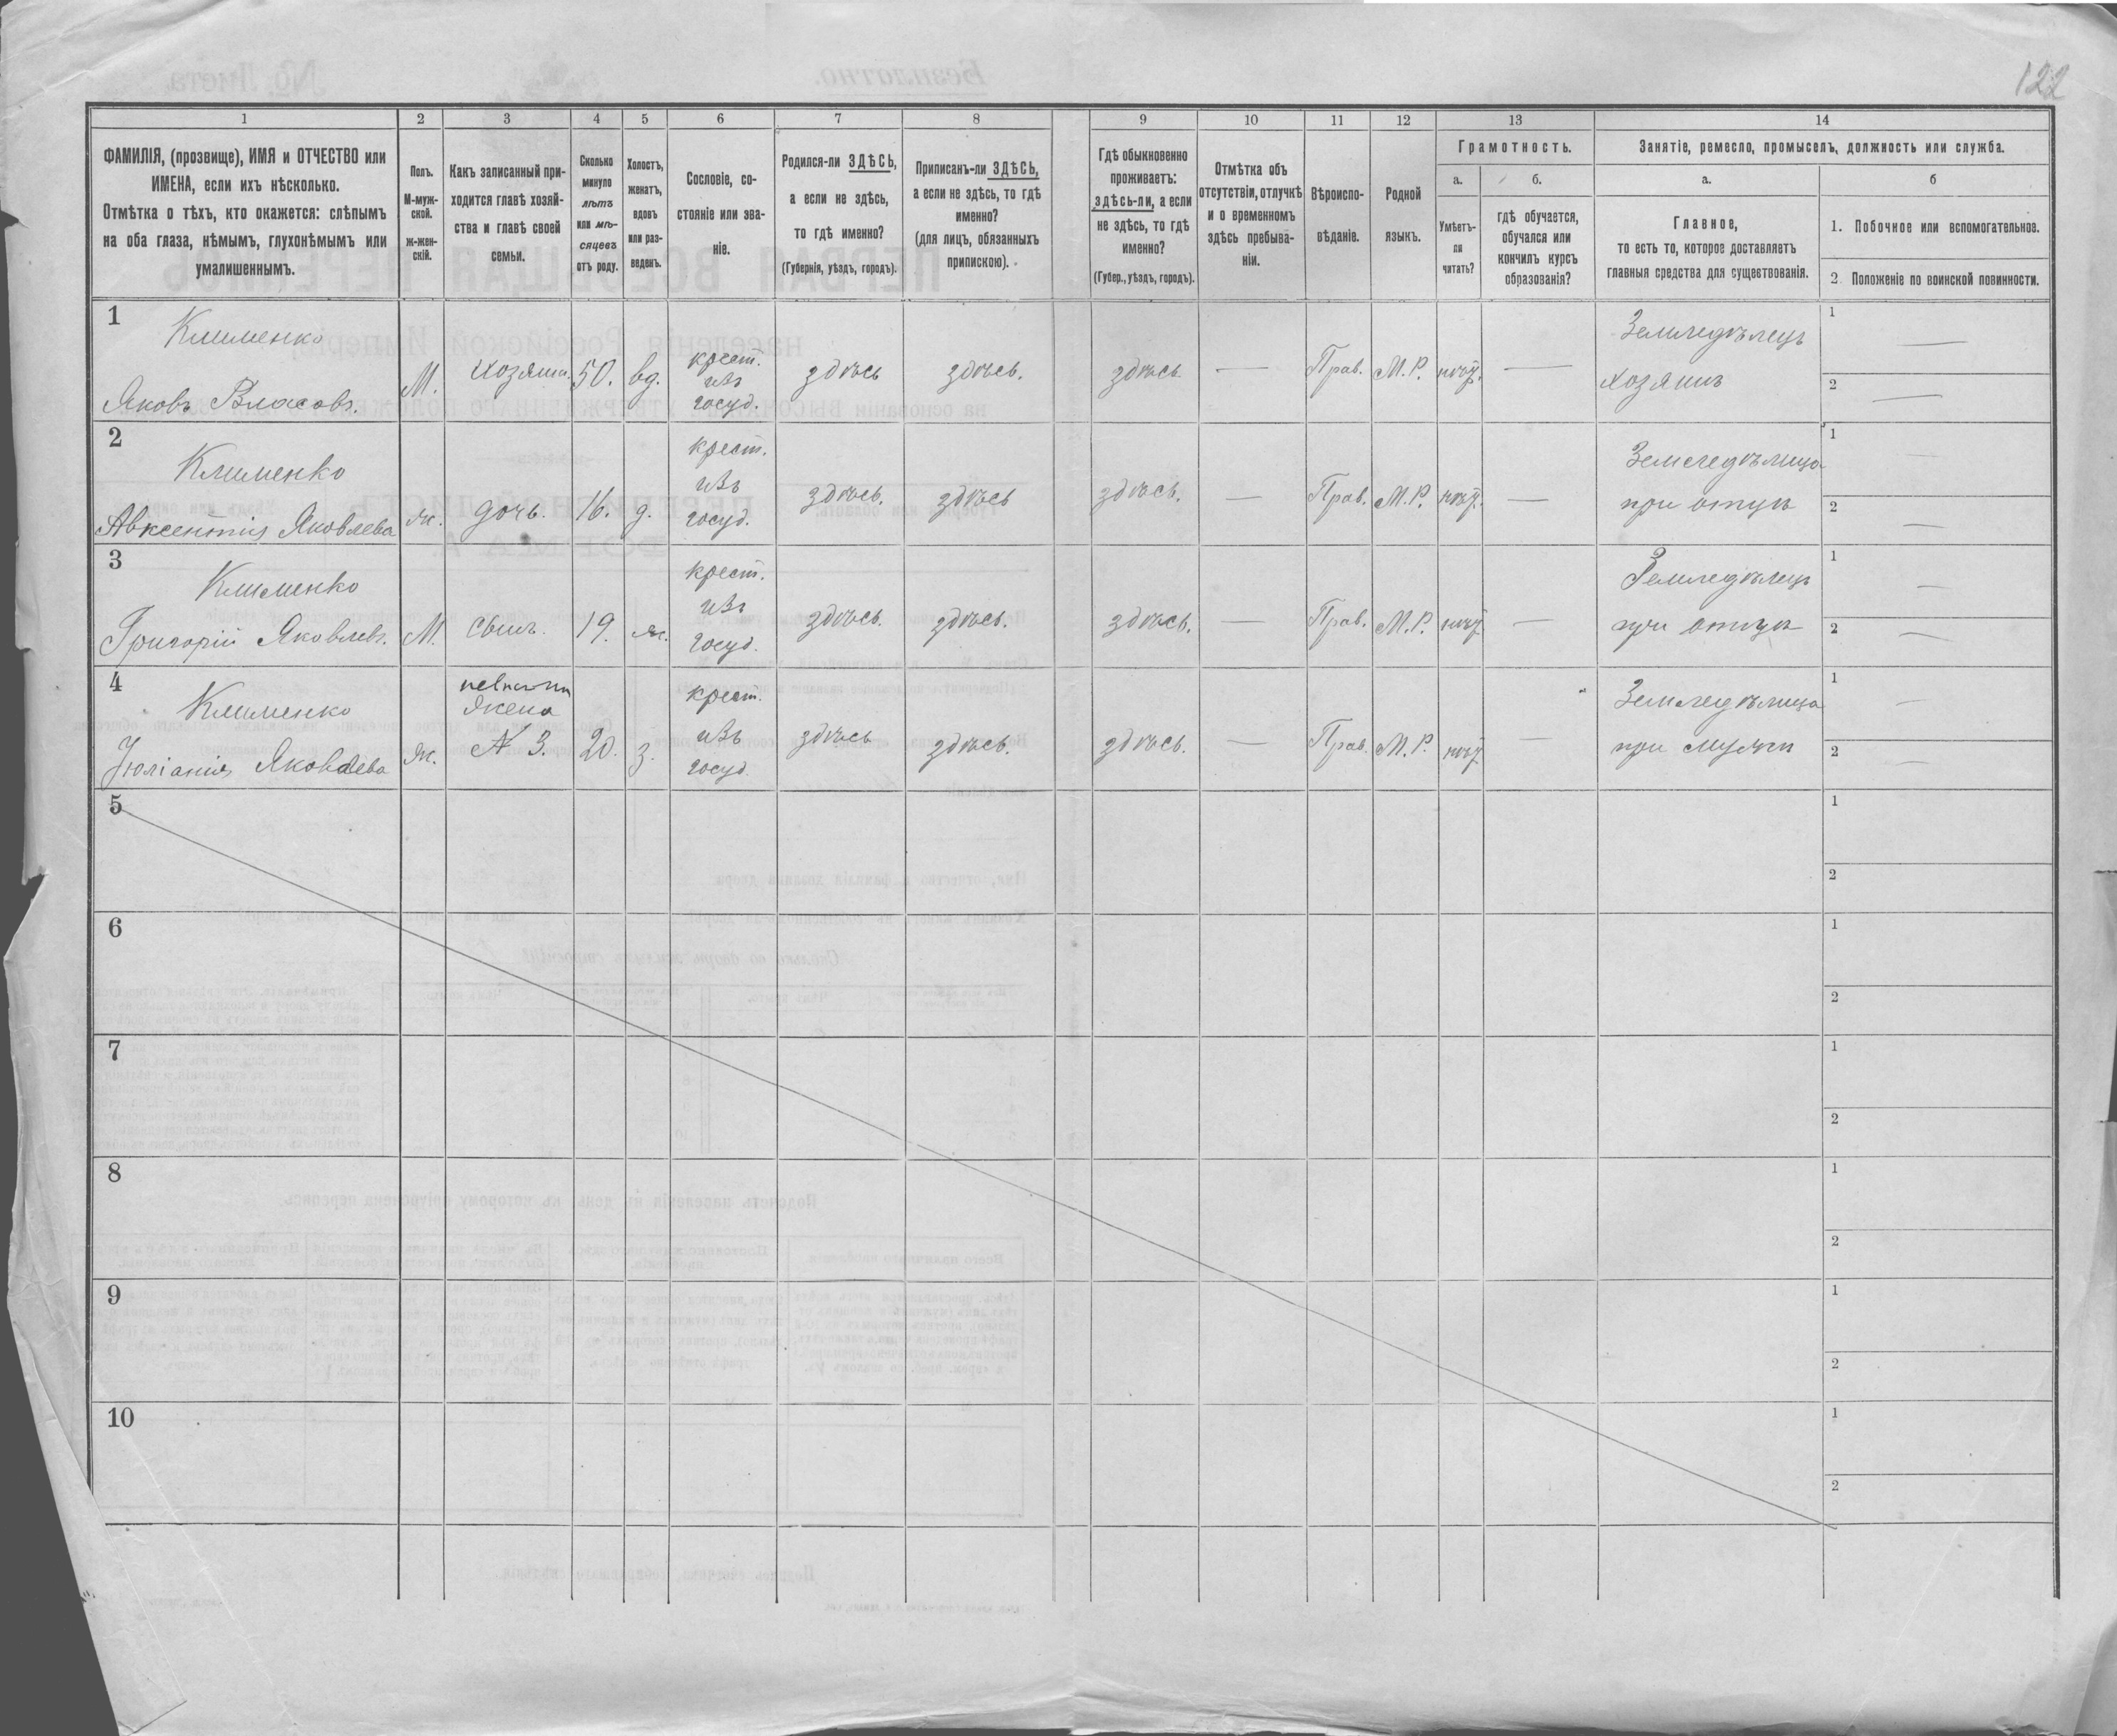 122
1
2
3
4
5
6
7
8
9
10
11
12
13
14
ФАМИЛІЯ, (прозвище), ИМЯ и ОТЧЕСТВО или
ИМЕНА, если ихъ нѣсколько.
Отмѣтка о тѣхъ, кто окажется: слѣпымъ
на оба глаза, нѣмымъ, глухонѣмымъ или
умалишеннымъ.
Полъ.
М-муж-
ской.
ж-жен-
скій.
Какъ записанный при-
ходится главѣ хозяй-
ства и главѣ своей
семьи.
Сколько
минуло
лѣтъ
или мѣ-
сяцевъ
отъ роду.
Холостъ,
женатъ,
вдовъ
или раз-
веденъ.
Сословіе, со-
стояніе или зва-
ніе.
Родился-ли ЗДѢСЬ,
а если не здѣсь,
то гдѣ именно?
(Губернія, уѣздъ, городъ).
Приписанъ-ли ЗДѢСЬ,
а если не здѣсь, то гдѣ
именно?
(для лицъ, обязанныхъ
припискою).
Гдѣ обыкновенно
проживаетъ:
здѣсь-ли, а если
не здѣсь, то гдѣ
именно?
(Губер., уѣздъ, городъ).
Отмѣтка объ
отсутствіи, отлучкѣ
и о временномъ
здѣсь пребыва-
ніи.
Вѣроиспо-
вѣданіе.
Родной
языкъ.
Грамотность.
а.
Умѣетъ-
ли
читать?
б.
гдѣ обучается,
обучался или
кончилъ курсъ
образованія?
Занятіе, ремесло, промыселъ, должность или служба.
а.
Главное,
то есть то, которое доставляетъ
главныя средства для существованія.
б
1. Побочное или вспомогательное.
2. Положеніе по воинской повинности.
1
Клименко
Яковъ Власовъ.
М.
хозяин.
50.
вд.
крест.
изъ
госуд.
здѣсь
здѣсь.
здѣсь
—
Прав.
М.Р.
—
Земледѣлецъ
хозяинъ
1 —
2 —
2
Клименко
Авксентія Яковлева
ж.
дочь.
16.
д.
крест.
изъ
госуд.
здѣсь.
здѣсь
здѣсь.
—
Прав.
М.Р.
—
Земледѣлица
при отцѣ
1 —
2 —
3
Клименко
Григорій Яковлевъ.
М.
сынъ.
19.
ж.
крест.
изъ
госуд.
здѣсь.
здѣсь.
здѣсь.
—
Прав.
М.Р.
—
Земледѣлецъ
при отцѣ
1 —
2 —
4
Клименко
Іюліанія Яковлева
ж.
жена
N 3.
20.
з.
крест.
изъ
госуд.
здѣсь
здѣсь.
здѣсь.
—
Прав.
М.Р.
—
Земледѣлица
при мужѣ
1 —
2 —
5
1
2
6
1
2
7
1
2
8
1
2
9
1
2
10
1
2